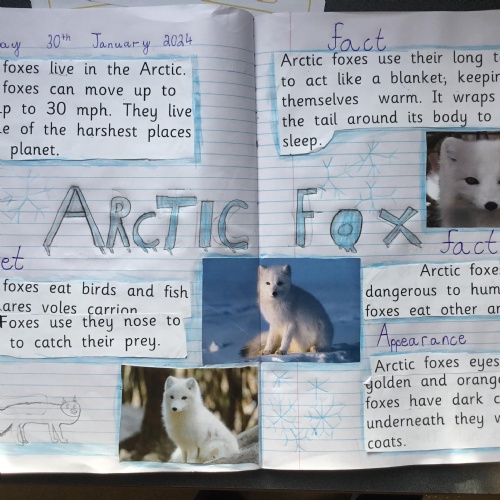 ay 30th January 2024
foxes live in the Arctic.
foxes can move up to
up to 30 mph. They live
e of the harshest places
planet.
fact
Arctic foxes use their long t
to act like a blanket, keepin
themselves warm. It wraps
the tail around its body to
sleep.
ARCTIC FOX
et
foxes eat birds and fish
ares voles carrion
Foxes use they nose to
to catch their prey.
fact
Arctic foxe
dangerous to hum
foxes eat other an
Appearance
Arctic foxes eyes
golden and orang
foxes have dark c
underneath they w
coats.